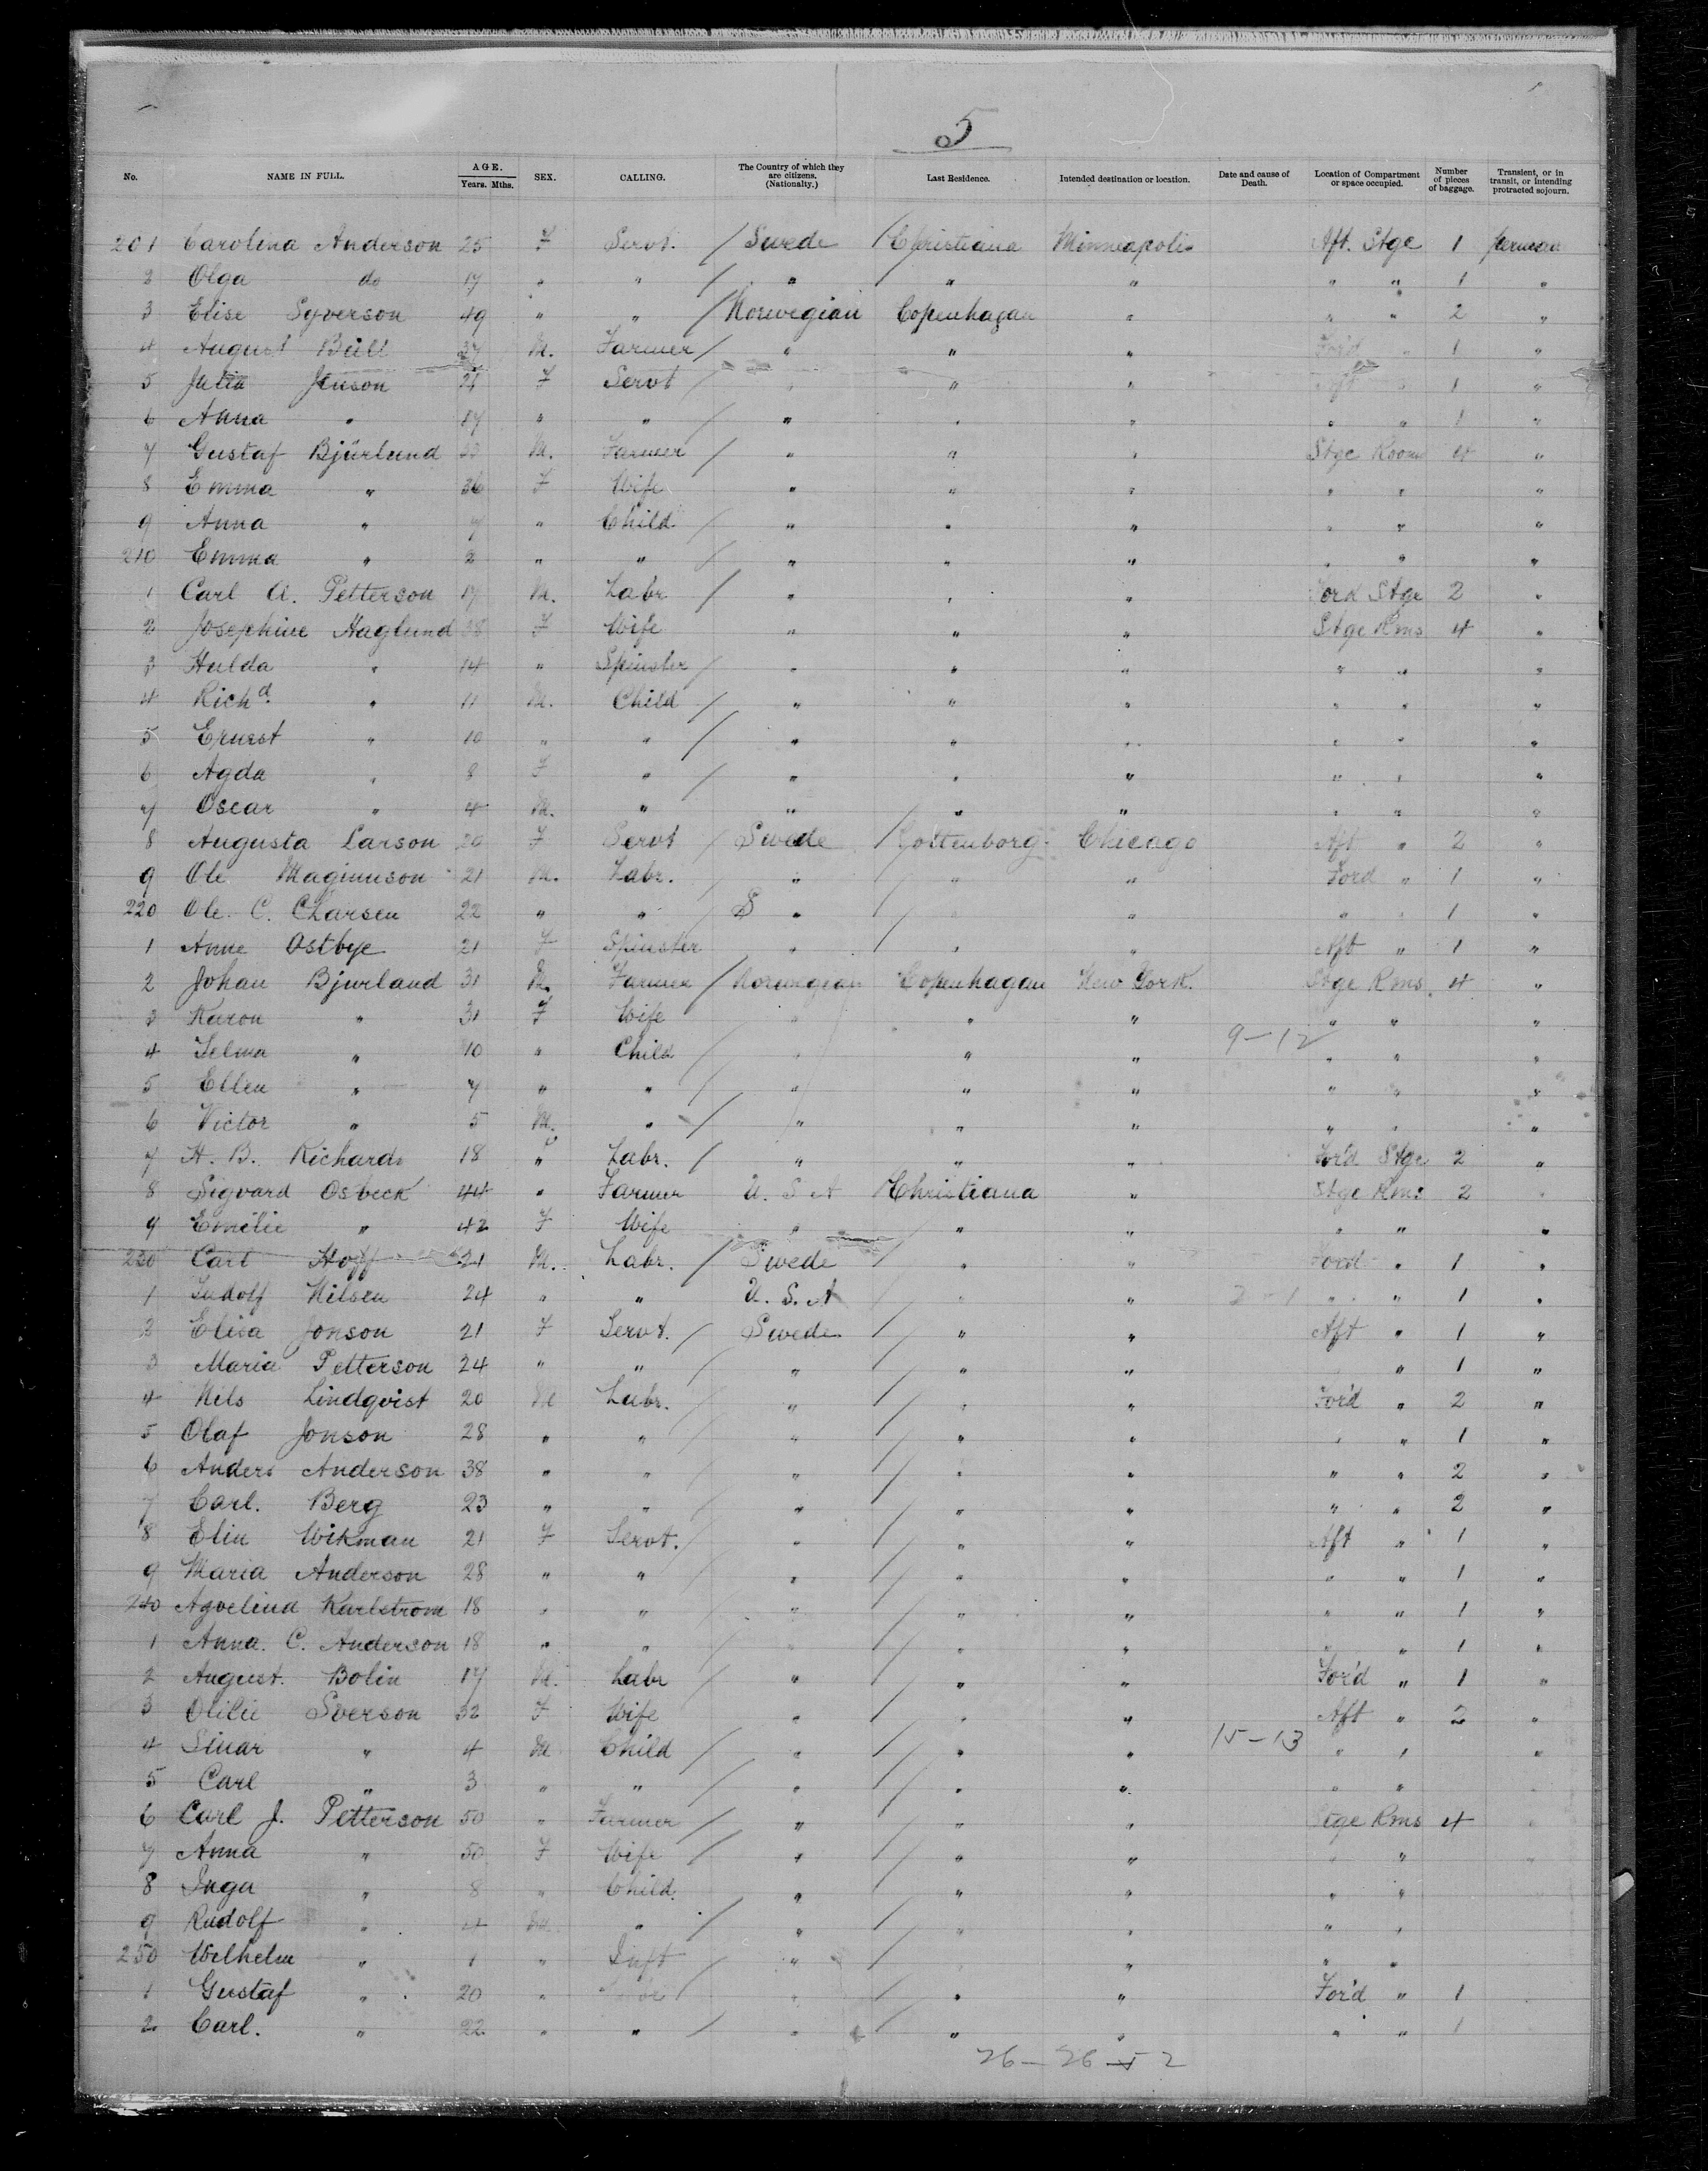 5
No. NAME IN FULL. AGE. Years. Mths. SEX. CALLING. The Country of which they are citizens. (Nationality.) Last Residence. Intended destination or location. Date and cause of Death. Location of Compartment or space occupied. Number of pieces of baggage. Transient, or in transit, or intending protracted sojourn.
201 Carolina Anderson 25 F Servt. / Swede / Christiana Minneapolis Aft. Stge 1
2 Olga do 17 " " / " " " " " 1 "
3 Elise Syverson 49 " " / Norwegian Copenhagan " " " 2 "
4 August Büll 37 M. Farmer / " " " For'd " 1 "
5 Julia Jenson F Servt / " " " Aft " 1 "
6 Anna " 17 " " / " " " " " 1 "
7 Gustaf Bjürlund M. Farmer / " " " Stge Room 4 "
8 Emma " 36 F Wife " " " " " "
9 Anna " 7 " Child / " " " " " "
210 Emma " 2 " " / " " " " " "
1 Carl A. Petterson 17 M. Labr / " " " Stge 2 "
2 Josephine Haglund 38 F Wife " " " Stge Rms 4 "
3 Hulda " 14 " Spinster / " " " " " "
4 Richd " 11 M. Child / " " " " " "
5 Ernest " 10 " " / " " " " " "
6 Agda " 8 F " / " " " " " "
7 Oscar " 4 M. " " " " " " "
8 Augusta Larson 20 F Servt / Swede / Gottenborg Chicago Aft " 2 "
9 Ole Magnuson 21 M. Labr. / " / " " Ford " 1 "
220 Ole C. Charsen 22 " " S " / " " " " 1 "
1 Anne Ostbye 21 F Spinster " / " " Aft " 1 "
2 Johan Bjurland 31 M. Farmer / Norwegian Copenhagan New York. Stge Rms 4 "
3 Karon " 31 F Wife " " " " " "
4 Selma " 10 " Child / " " " 9-12 " " "
5 Ellen " 7 " " / " " " " " "
6 Victor " 5 M. " / " " " " " "
7 H. B. Richards 18 " Labr. / " " " For'd Stge 2 "
8 Sigvard Osbeck 44 " Farmer U. S A Christiana " Stge Rms 2 "
9 Emilie " 42 F Wife " " " " " "
230 Carl Hoff 21 M. Labr. / Swede / " " Ford " 1 "
1 Nilsen 24 " " U. S. A / " " " " 1 "
2 Elisa Jonson 21 F Servt. / Swede / " " Aft " 1 "
3 Maria Petterson 24 " " / " / " " " 1 "
4 Nels Lindqvist 20 M Labr. / " / " " For'd " 2 "
5 Olaf Jonson 28 " " / " / " " " " 1 "
6 Anders Anderson 38 " " / " / " " " " 2 "
7 Carl. Berg 23 " " / " / " " " " 2 "
8 Elin Wikman 21 F Servt. / " / " " Aft " 1 "
9 Maria Anderson 28 " " / " / " " " " 1 "
240 Karlstrom 18 " " / " / " " " " 1 "
1 Anna. C. Anderson 18 " " / " / " " " " 1 "
2 August. Bolin 17 M. Labr / " / " " For'd " 1 "
3 Sverson 32 F Wife " / " " Aft " 2 "
4 " 4 M Child / " / " " 15-13 " " "
5 Carl " 3 " " / " / " " " "
6 Carl J. Petterson 50 " Farmer / " / " " Stge Rms 4
7 Anna " 50 F Wife / " / " " "
8 Inga " 8 " Child. " / " " " "
9 Rudolf " 4 M. " / " / " " " "
250 Wilhelm " 1 " Inft " / " " "
1 Gustaf " 20 " / " / " " For'd " 1
2 Carl. " 22 " " / " / " " " " 1
26-26 52